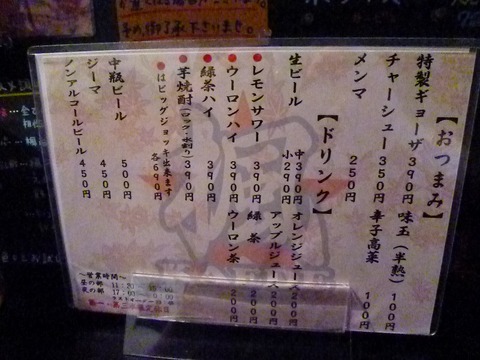 予め御了承下さいませ。
【おつまみ】
特製ギョーザ 390円 味玉(半熟) 100円
チャーシュー 350円 辛子高菜 100円
メンマ 250円
【ドリンク】
生ビール 中390円 小290円
オレンジジュース 200円
アップルジュース 200円
●レモンサワー 390円 緑茶 200円
●ウーロンハイ 390円 ウーロン茶 200円
●緑茶ハイ 390円
●芋焼酎(ロック・水割り) 390円
●はビッグジョッキ出来ます 各690円
中瓶ビール 500円
ジーマ 450円
ノンアルコールビール 450円
～営業時間～
昼の部 11:20
夜の部 17:00